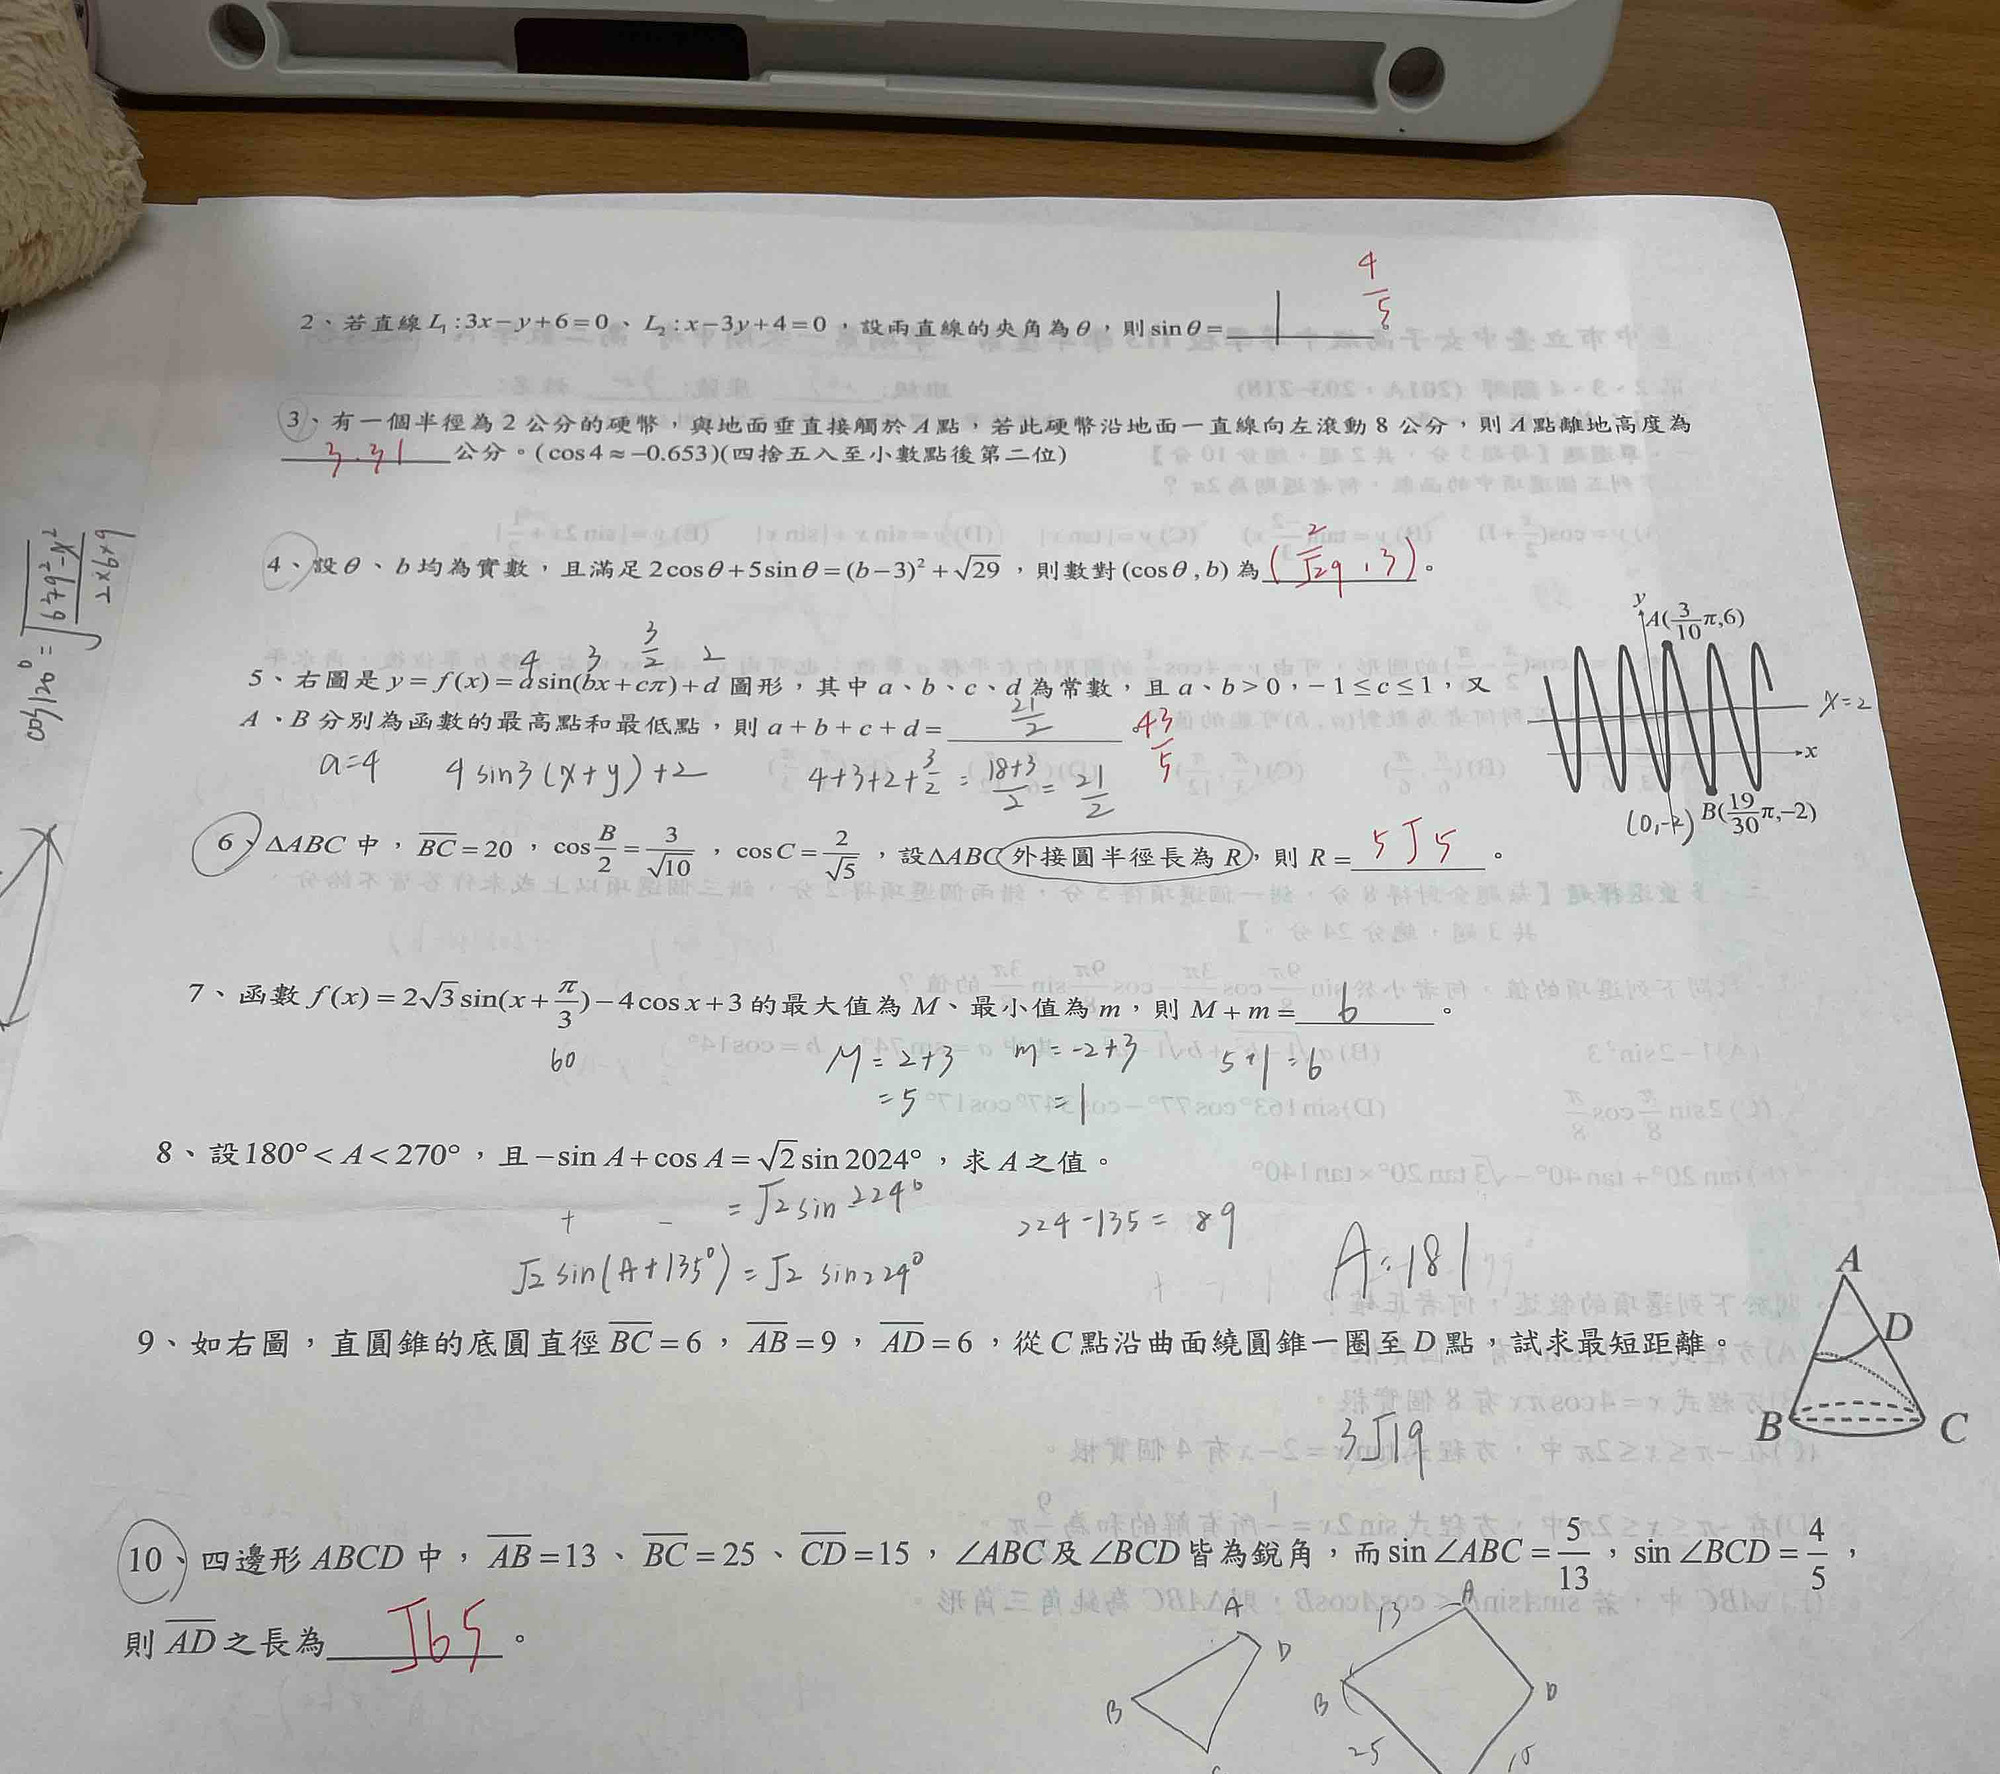 4/5
2、若直線L₁:3x−y+6=0、L₂:x−3y+4=0，設兩直線的夾角為θ，則sinθ= 1 。
3、有一個半徑為2公分的硬幣，與地面垂直接觸於A點，若此硬幣沿地面一直線向左滾動8公分，則A點離地高度為
3.31 公分。(cos4≈−0.653)(四捨五入至小數點後第二位)
4、設θ、b均為實數，且滿足2cosθ+5sinθ=(b−3)²+√29，則數對(cosθ,b)為 (2/√29, 3) 。
4 3 3/2 2
5、右圖是y=f(x)=asin(bx+cπ)+d圖形，其中a、b、c、d為常數，且a、b>0，−1≤c≤1，又
A、B分別為函數的最高點和最低點，則a+b+c+d= 21/2 。 43/5
a=4 4sin3(x+y)+2 4+3+2+3/2=(18+3)/2=21/2
y
A(3/10π,6)
x=2
x
(0,-2) B(19/30π,−2)
6、ΔABC中，BC=20，cosB/2=3/√10，cosC=2/√5，設ΔABC外接圓半徑長為R，則R= 5√5 。
7、函數f(x)=2√3sin(x+π/3)−4cosx+3的最大值為M、最小值為m，則M+m= 6 。
60 M=2+3 m=-2+3 5+1=6
=5 =1
8、設180°<A<270°，且−sinA+cosA=√2sin2024°，求A之值。
=√2sin224°
+ − 224-135=89
√2sin(A+135°)=√2sin224° A=181
9、如右圖，直圓錐的底圓直徑BC=6，AB=9，AD=6，從C點沿曲面繞圓錐一圈至D點，試求最短距離。
3√19
A
D
B C
10、四邊形ABCD中，AB=13、BC=25、CD=15，∠ABC及∠BCD皆為銳角，而sin∠ABC=5/13，sin∠BCD=4/5，
則AD之長為 √65 。
A D B
13 A B D 25 15
cos120°=√6²+9²-x²/2×6×9